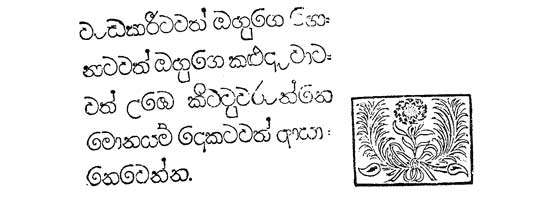 වැඩකාරීටවත් ඔහුගෙ ගො=
නාටවත් ඔහුගෙ කළුදෑවාට=
වත් උඹෙ කිට්ටුවරුන්නෙ
මොනයම් දෙකටවත් ආසා=
නොවෙන්න.